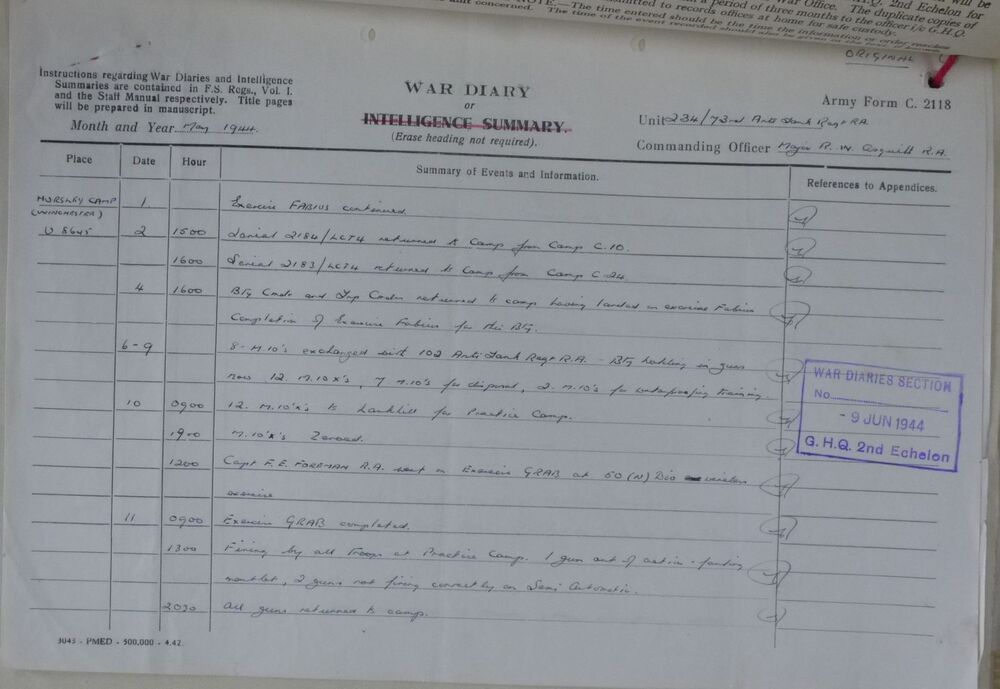 2nd Echelon for
a period of three months to the officer i/c G.H.Q.
War Office. The duplicate copies of
to records offices at home for safe custody.
NOTE.—The time entered should be the time the information or order reaches
unit concerned. The time of the event recorded should also be given in the
ORIGINAL
Instructions regarding War Diaries and Intelligence
Summaries are contained in F.S. Regs., Vol. I.
and the Staff Manual respectively. Title pages
will be prepared in manuscript.
WAR DIARY
or
INTELLIGENCE SUMMARY.
(Erase heading not required).
Army Form C. 2118
Month and Year May 1944.
Unit 234/73rd Anti Tank Regt RA.
Commanding Officer Major R. W. R.A.
Place Date Hour Summary of Events and Information. References to Appendices.
HURSLEY CAMP 1 Exercise FABIUS continued.
(WINCHESTER)
U 8645 2 1500 Serial 2184/LCT4 returned to Camp from Camp C.10.
1600 Serial 2183/LCT4 returned to Camp from Camp C.24.
4 1600 Bty Cmdr and Trp Cmdrs returned to camp having landed on exercise Fabius
Completion of Exercise Fabius for this Bty.
6-9 8-M.10's exchanged with 102 Anti Tank Regt R.A. - Bty holding in guns
now 12. M.10x's, 7 M.10's for disposal, 2. M.10's for waterproofing training.
10 0900 12. M.10x's to Larkhill for Practice Camp.
1900 M.10x's Zeroed.
1200 Capt F.E. FOREMAN R.A. went on Exercise GRAB at 50 (N) Div wireless
exercise
11 0900 Exercise GRAB completed.
1300 Firing by all Troops at Practice Camp. 1 gun out of action - faulty
mantlet, 2 guns not firing correctly on Semi Automatic.
2030 All guns returned to camp.
WAR DIARIES SECTION
No.
- 9 JUN 1944
G.H.Q. 2nd Echelon
3043 - PMED - 500,000 - 4.42.